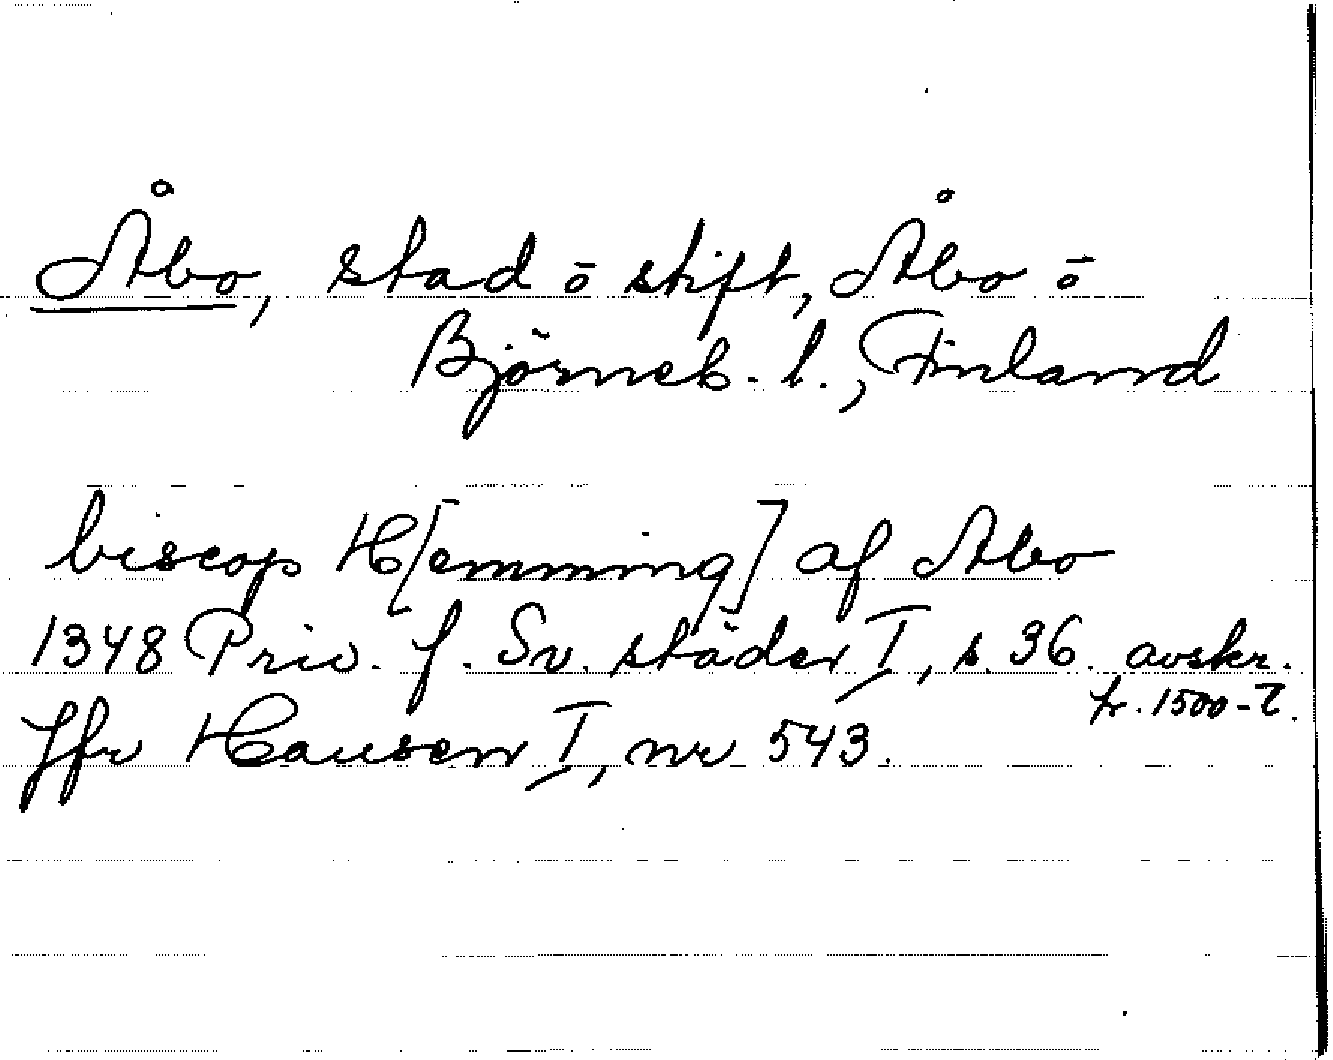 Åbo, stad ō stift, Åbo ō
Björneb. l., Finland
biscop H[emming] af Abo
1348 Priv. f. Sv. städer I, s. 36. avskr.
fr. 1500-t.
Jfr Hausen I, nr 543.